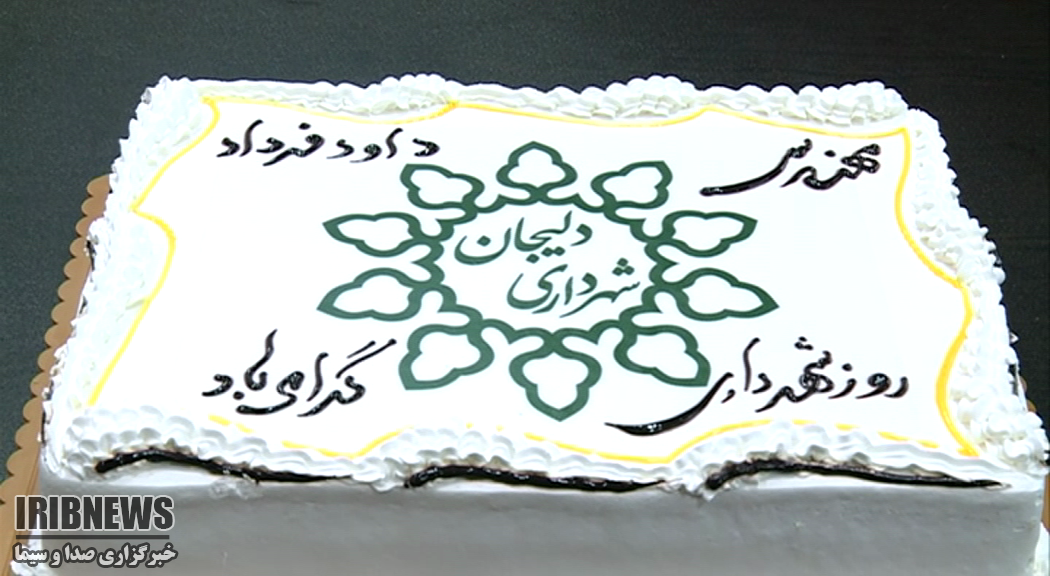 مهندس داود فرداد
دلیجان
شهرداری
روز شهرداری گرامی باد
IRIBNEWS
خبرگزاری صدا و سیما